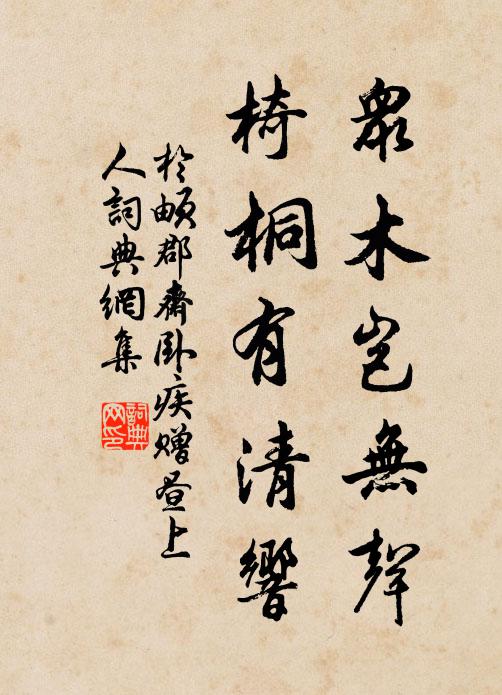 眾木豈無聲
椅桐有清響
於頔郡齋臥疾贈晝上
人詞典網集
詞典网印